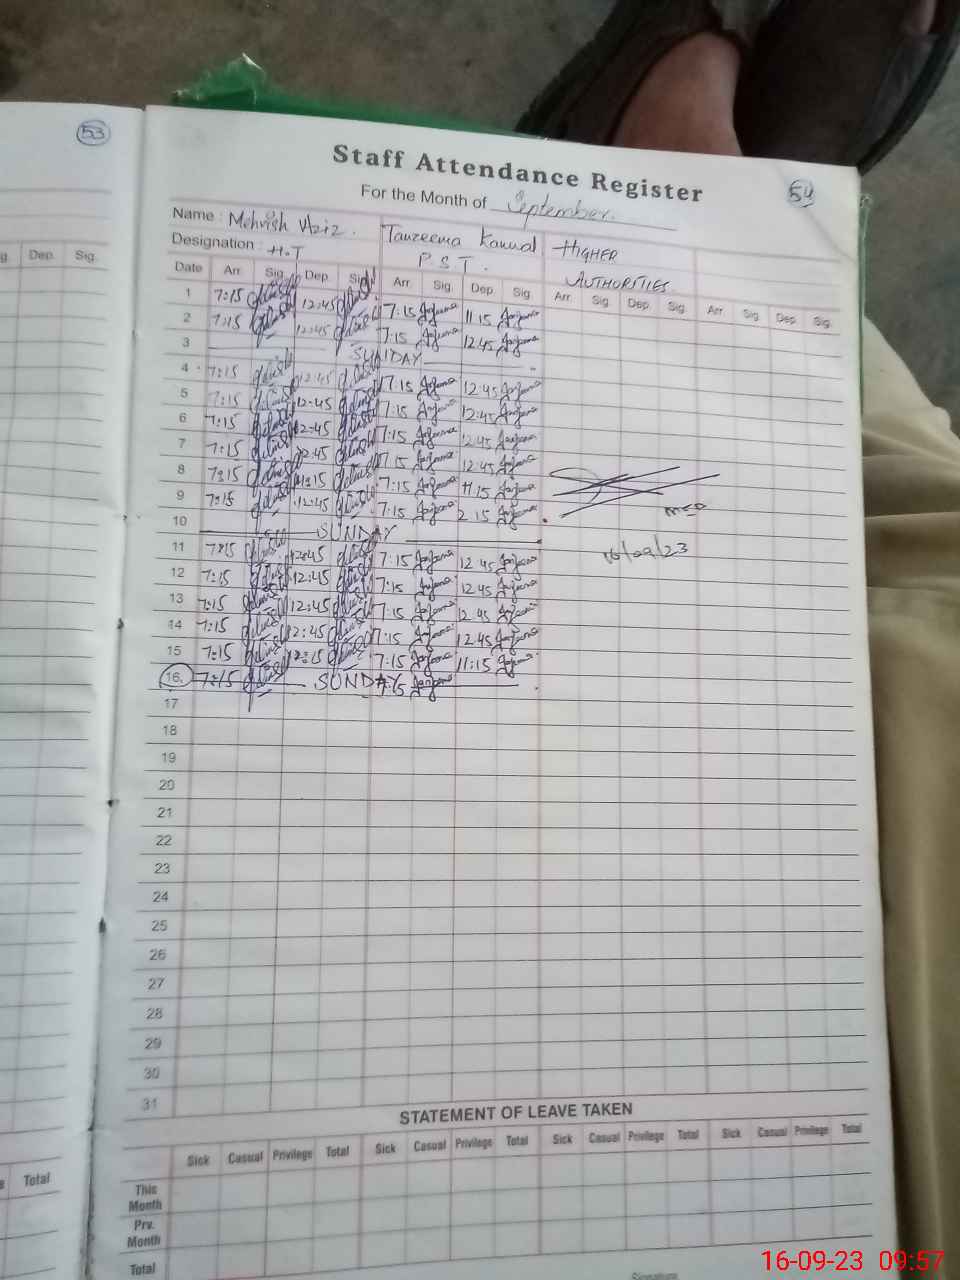 53
54
Staff Attendance Register
For the Month of September.
Name : Mehvish Aziz. Tanzeema Kanwal HIGHER
Designation : H.T P.S.T. AUTHORITIES.
g. Dep. Sig.
Date Arr. Sig. Dep. Sig. Arr. Sig. Dep. Sig. Arr. Sig. Dep. Sig. Arr. Sig. Dep. Sig.
1 7:15 12:45 7:15 11:15
2 7:15 12:45 7:15 12:45
3 SUNDAY
4 7:15 12:45 7:15 12:45
5 7:15 12:45 7:15 12:45
6 7:15 12:45 7:15 12:45
7 7:15 12:45 7:15 12:45
8 7:15 11:15 7:15 11:15
9 7:15 12:45 7:15 2 15
MED
10 SUNDAY
16/09/23
11 7:15 12:45 7:15 12 45
12 7:15 12:45 7:15 12 45
13 7:15 12:45 7:15 12 45
14 7:15 12:45 7:15 12 45
15 7:15 7:15 11:15
16. 7:15 SUNDAY 7:15
17
18
19
20
21
22
23
24
25
26
27
28
29
30
31
STATEMENT OF LEAVE TAKEN
Sick Casual Privilege Total Sick Casual Privilege Total Sick Casual Privilege Total Sick Casual Privilege Total
Total
This
Month
Prv.
Month
Total
Signature
16-09-23 09:57